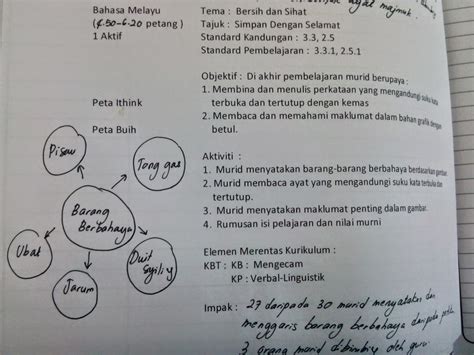 ayat majmuk.
Bahasa Melayu
(4.50-6.20 petang)
1 Aktif
Peta Ithink
Peta Buih
Pisau
Tong gas
Barang
Berbahaya
Ubat
Jarum
Duit
Tema : Bersih dan Sihat
Tajuk : Simpan Dengan Selamat
Standard Kandungan : 3.3, 2.5
Standard Pembelajaran : 3.3.1, 2.5.1
Objektif : Di akhir pembelajaran murid berupaya :
1. Membina dan menulis perkataan yang mengandungi suku kata
terbuka dan tertutup dengan kemas
2. Membaca dan memahami maklumat dalam bahan grafik dengan
betul.
Aktiviti :
1. Murid menyatakan barang-barang berbahaya berdasarkan gambar.
2. Murid membaca ayat yang mengandungi suku kata terbuka dan
tertutup.
3. Murid menyatakan maklumat penting dalam gambar.
4. Rumusan isi pelajaran dan nilai murni
Elemen Merentas Kurikulum :
KBT : KB : Mengecam
KP : Verbal-Linguistik
Impak : 27 daripada 30 murid menyatakan dan
menggaris barang berbahaya daripada petikan
3 orang murid dibimbing oleh guru